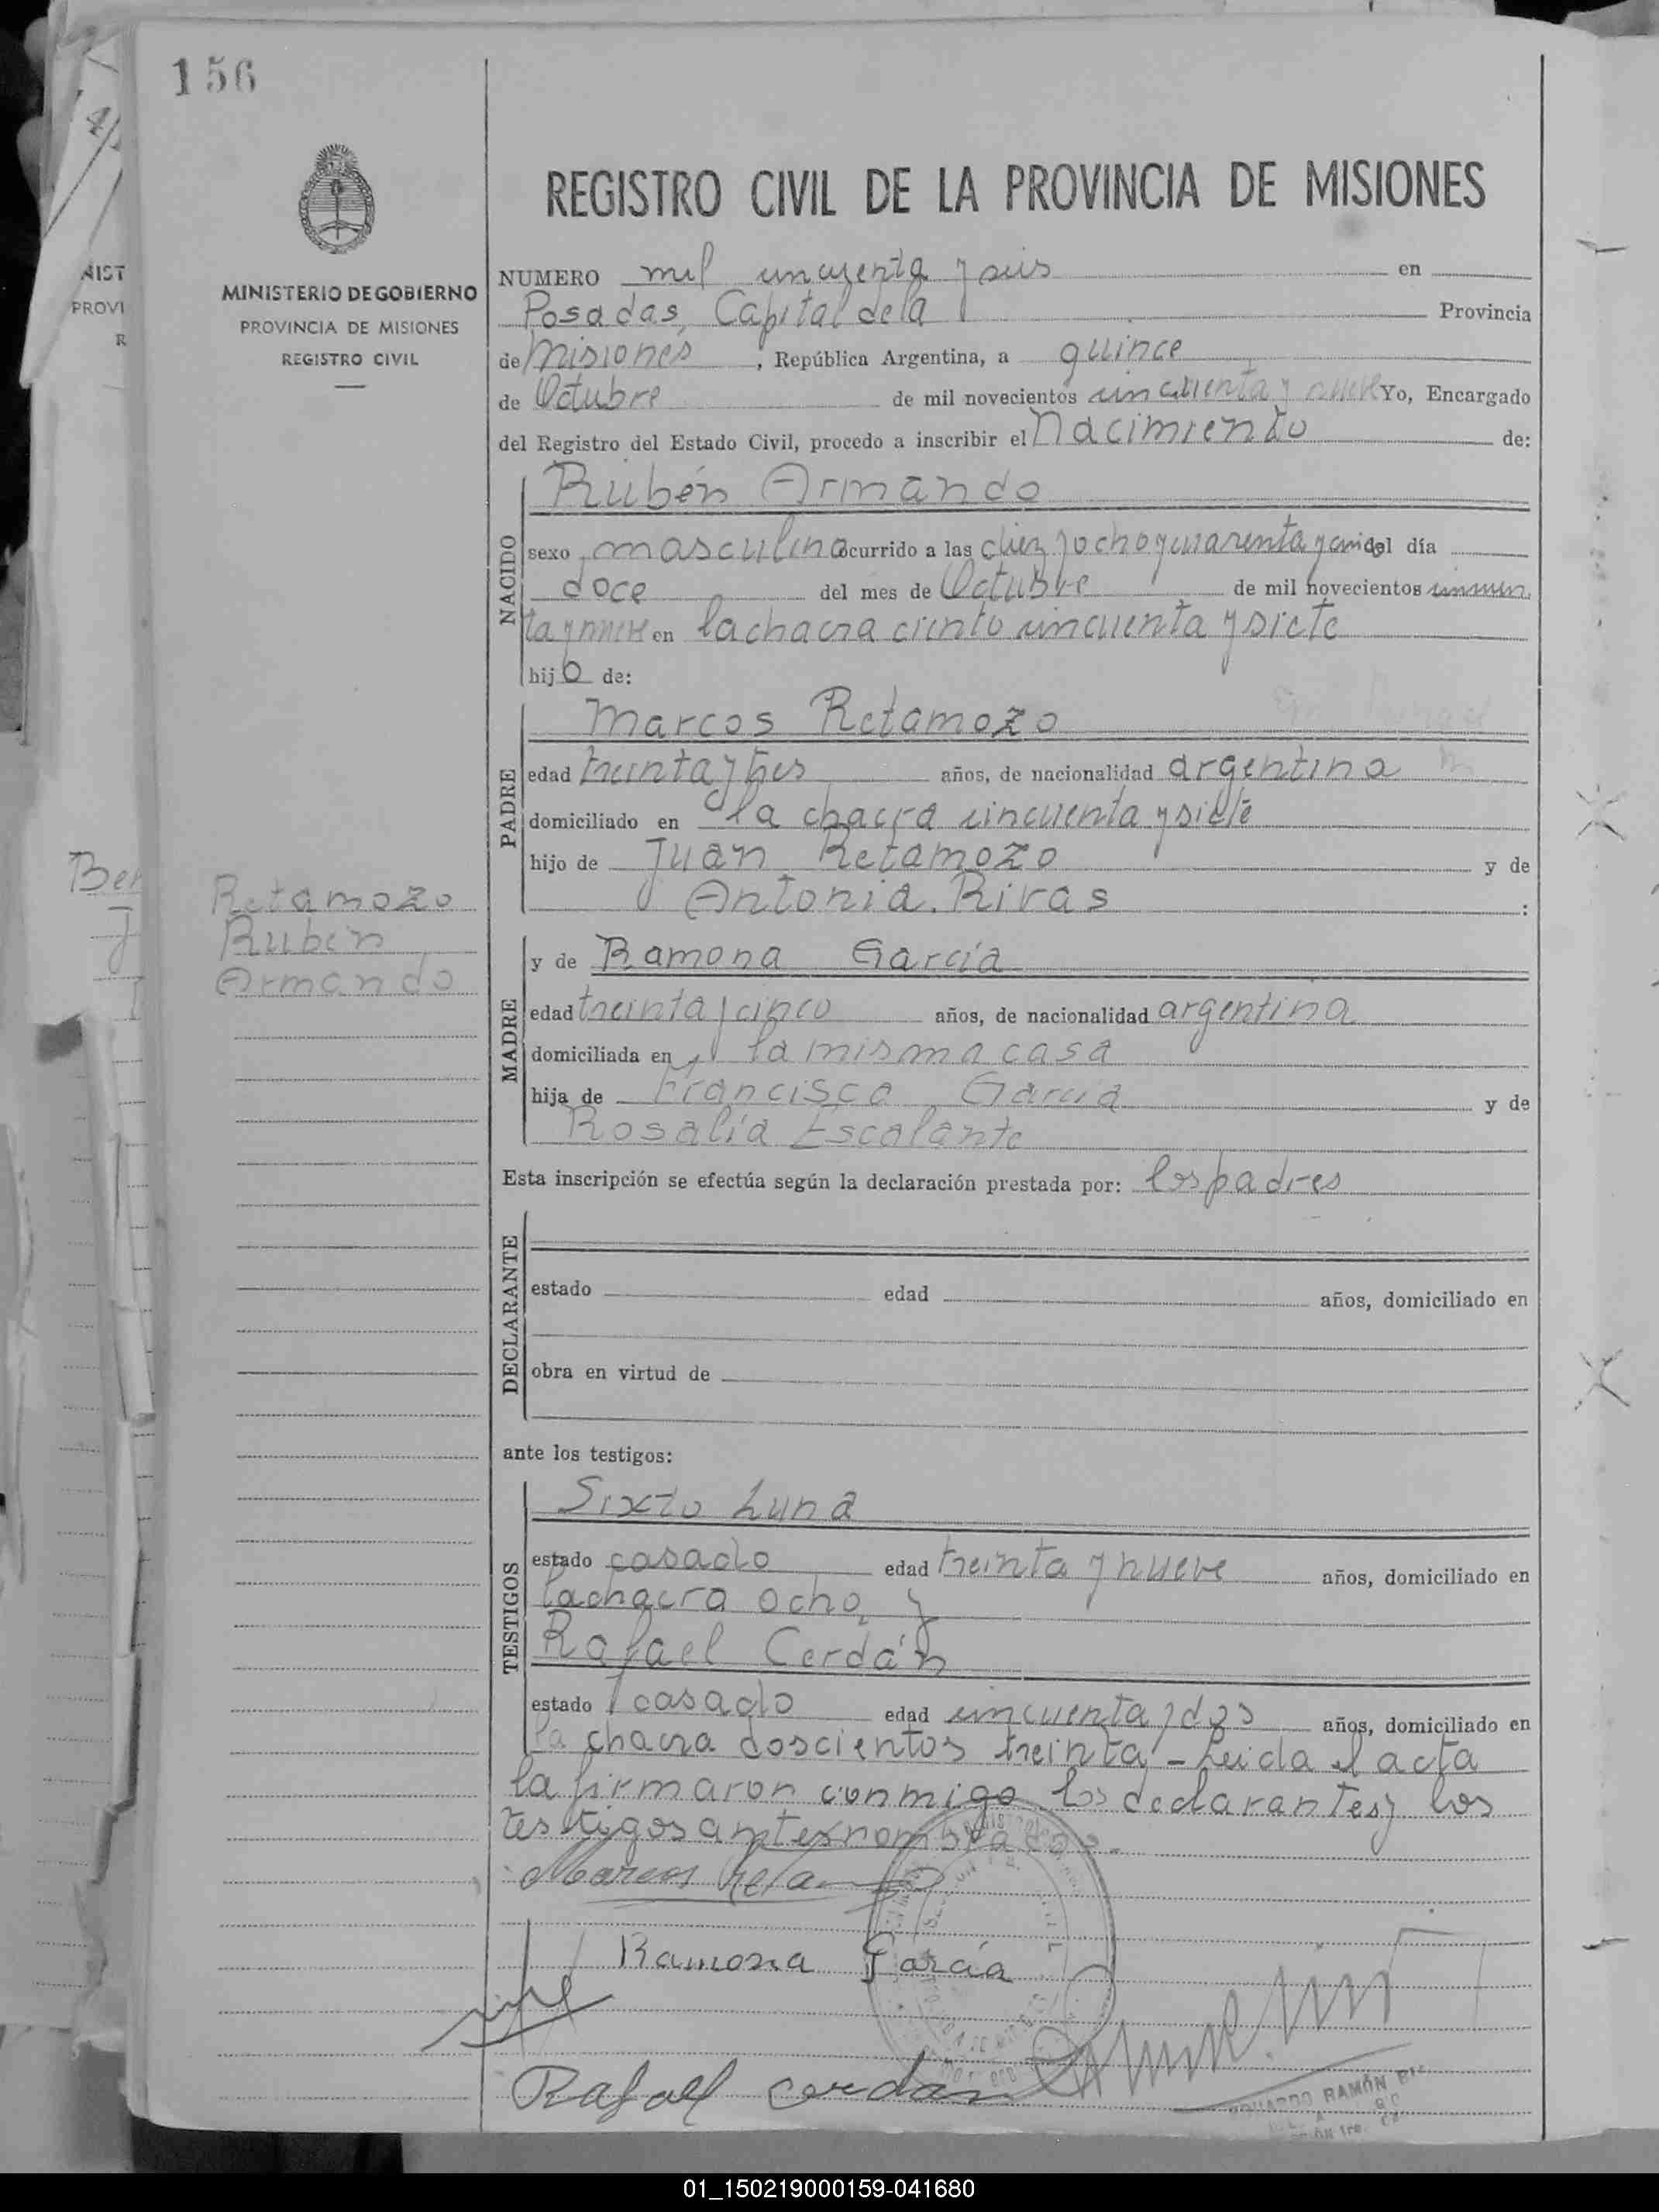 156
MINISTERIO DE GOBIERNO
PROVINCIA DE MISIONES
REGISTRO CIVIL
REGISTRO CIVIL DE LA PROVINCIA DE MISIONES
NUMERO mil cincuenta y seis en
Posadas, Capital de la Provincia
de Misiones, República Argentina, a quince
de Octubre de mil novecientos cincuenta y nueve Yo, Encargado
del Registro del Estado Civil, procedo a inscribir el Nacimiento de:
NACIDO
Rubén Armando
sexo masculino ocurrido a las diez y ocho y cuarenta y del día
doce del mes de Octubre de mil novecientos cincuen
ta y nueve en la chacra ciento cincuenta y siete
hijo de:
PADRE
Marcos Retamozo
edad treinta y tres años, de nacionalidad argentina
domiciliado en la chacra cincuenta y siete
hijo de Juan Retamozo y de
Antonia Rivas :
Retamozo
Rubén
Armando
MADRE
y de Ramona García
edad treinta y cinco años, de nacionalidad argentina
domiciliada en la misma casa
hija de Francisco García y de
Rosalía Escalante
Esta inscripción se efectúa según la declaración prestada por: los padres
DECLARANTE
estado edad años, domiciliado en
obra en virtud de
ante los testigos:
TESTIGOS
Sixto Luna
estado casado edad treinta y nueve años, domiciliado en
la chacra ocho, y
Rafael Cerdán
estado casado edad cincuenta y dos años, domiciliado en
la chacra doscientos treinta - Leida el acta
la firmaron conmigo los declarantes y los
testigos antes nombrados.
Marcos Retamozo
Ramona García
Rafael Cerdán
EDUARDO RAMÓN
01_150219000159-041680